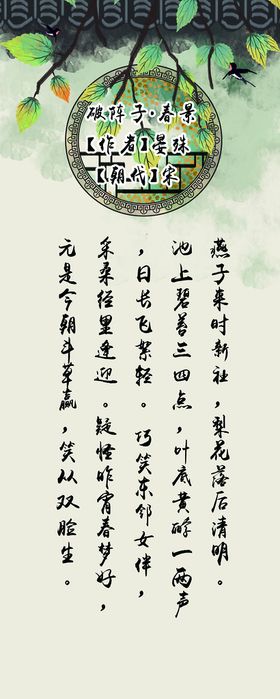 破阵子·春景
【作者】晏殊
【朝代】宋
燕子来时新社，梨花落后清明。
池上碧苔三四点，叶底黄鹂一两声
，日长飞絮轻。巧笑东邻女伴，
采桑径里逢迎。疑怪昨宵春梦好，
元是今朝斗草赢，笑从双脸生。